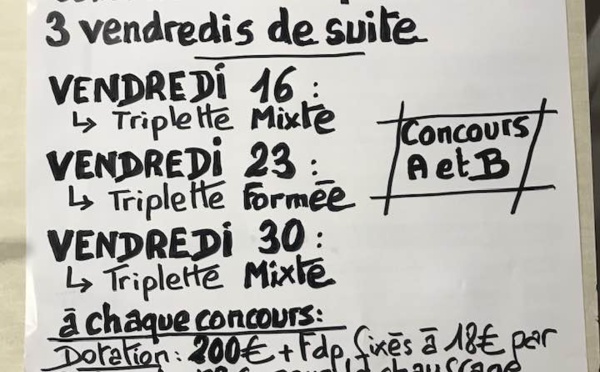 3 vendredis de suite
VENDREDi 16 :
↳ Triplette Mixte
Concours
A et B
VENDREDi 23 :
↳ Triplette Formée
VENDREDi 30 :
↳ Triplette Mixte
à chaque concours:
Dotation: 200€ + Fdp fixés à 18€ par
chaussage